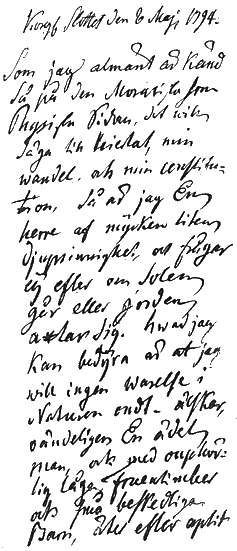 Kongl. Slottet den 6 Maj 1794.
Som jag almänt är känd
så på den Moraliska som
Physiska Sidan, det vill
säga till hiertat, min
wandel, och min constitu-
tion, så är jag En
herre af mycken liten
djupsinnighet, och frågar
ej efter om Solen
går eller Jorden
axlar sig. hwad jag
kan bedyra är att jag
will ingen warelse i
Naturen ondt - älskar,
oändeligen En ädel
man, och med
lig låga fruentimber
och små beskedliga
Barn, äter efter aptit